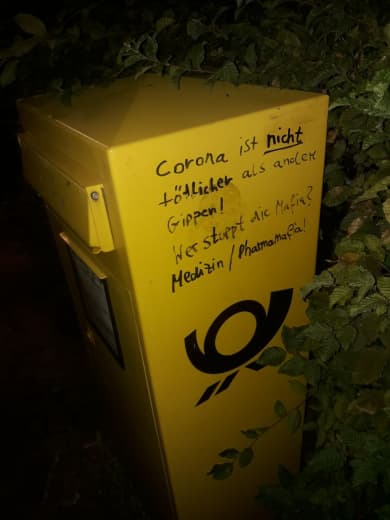 Corona ist nicht
tötlicher als andere
Grippen!
Wer stoppt die Mafia?
Medizin / Pharmamafia!